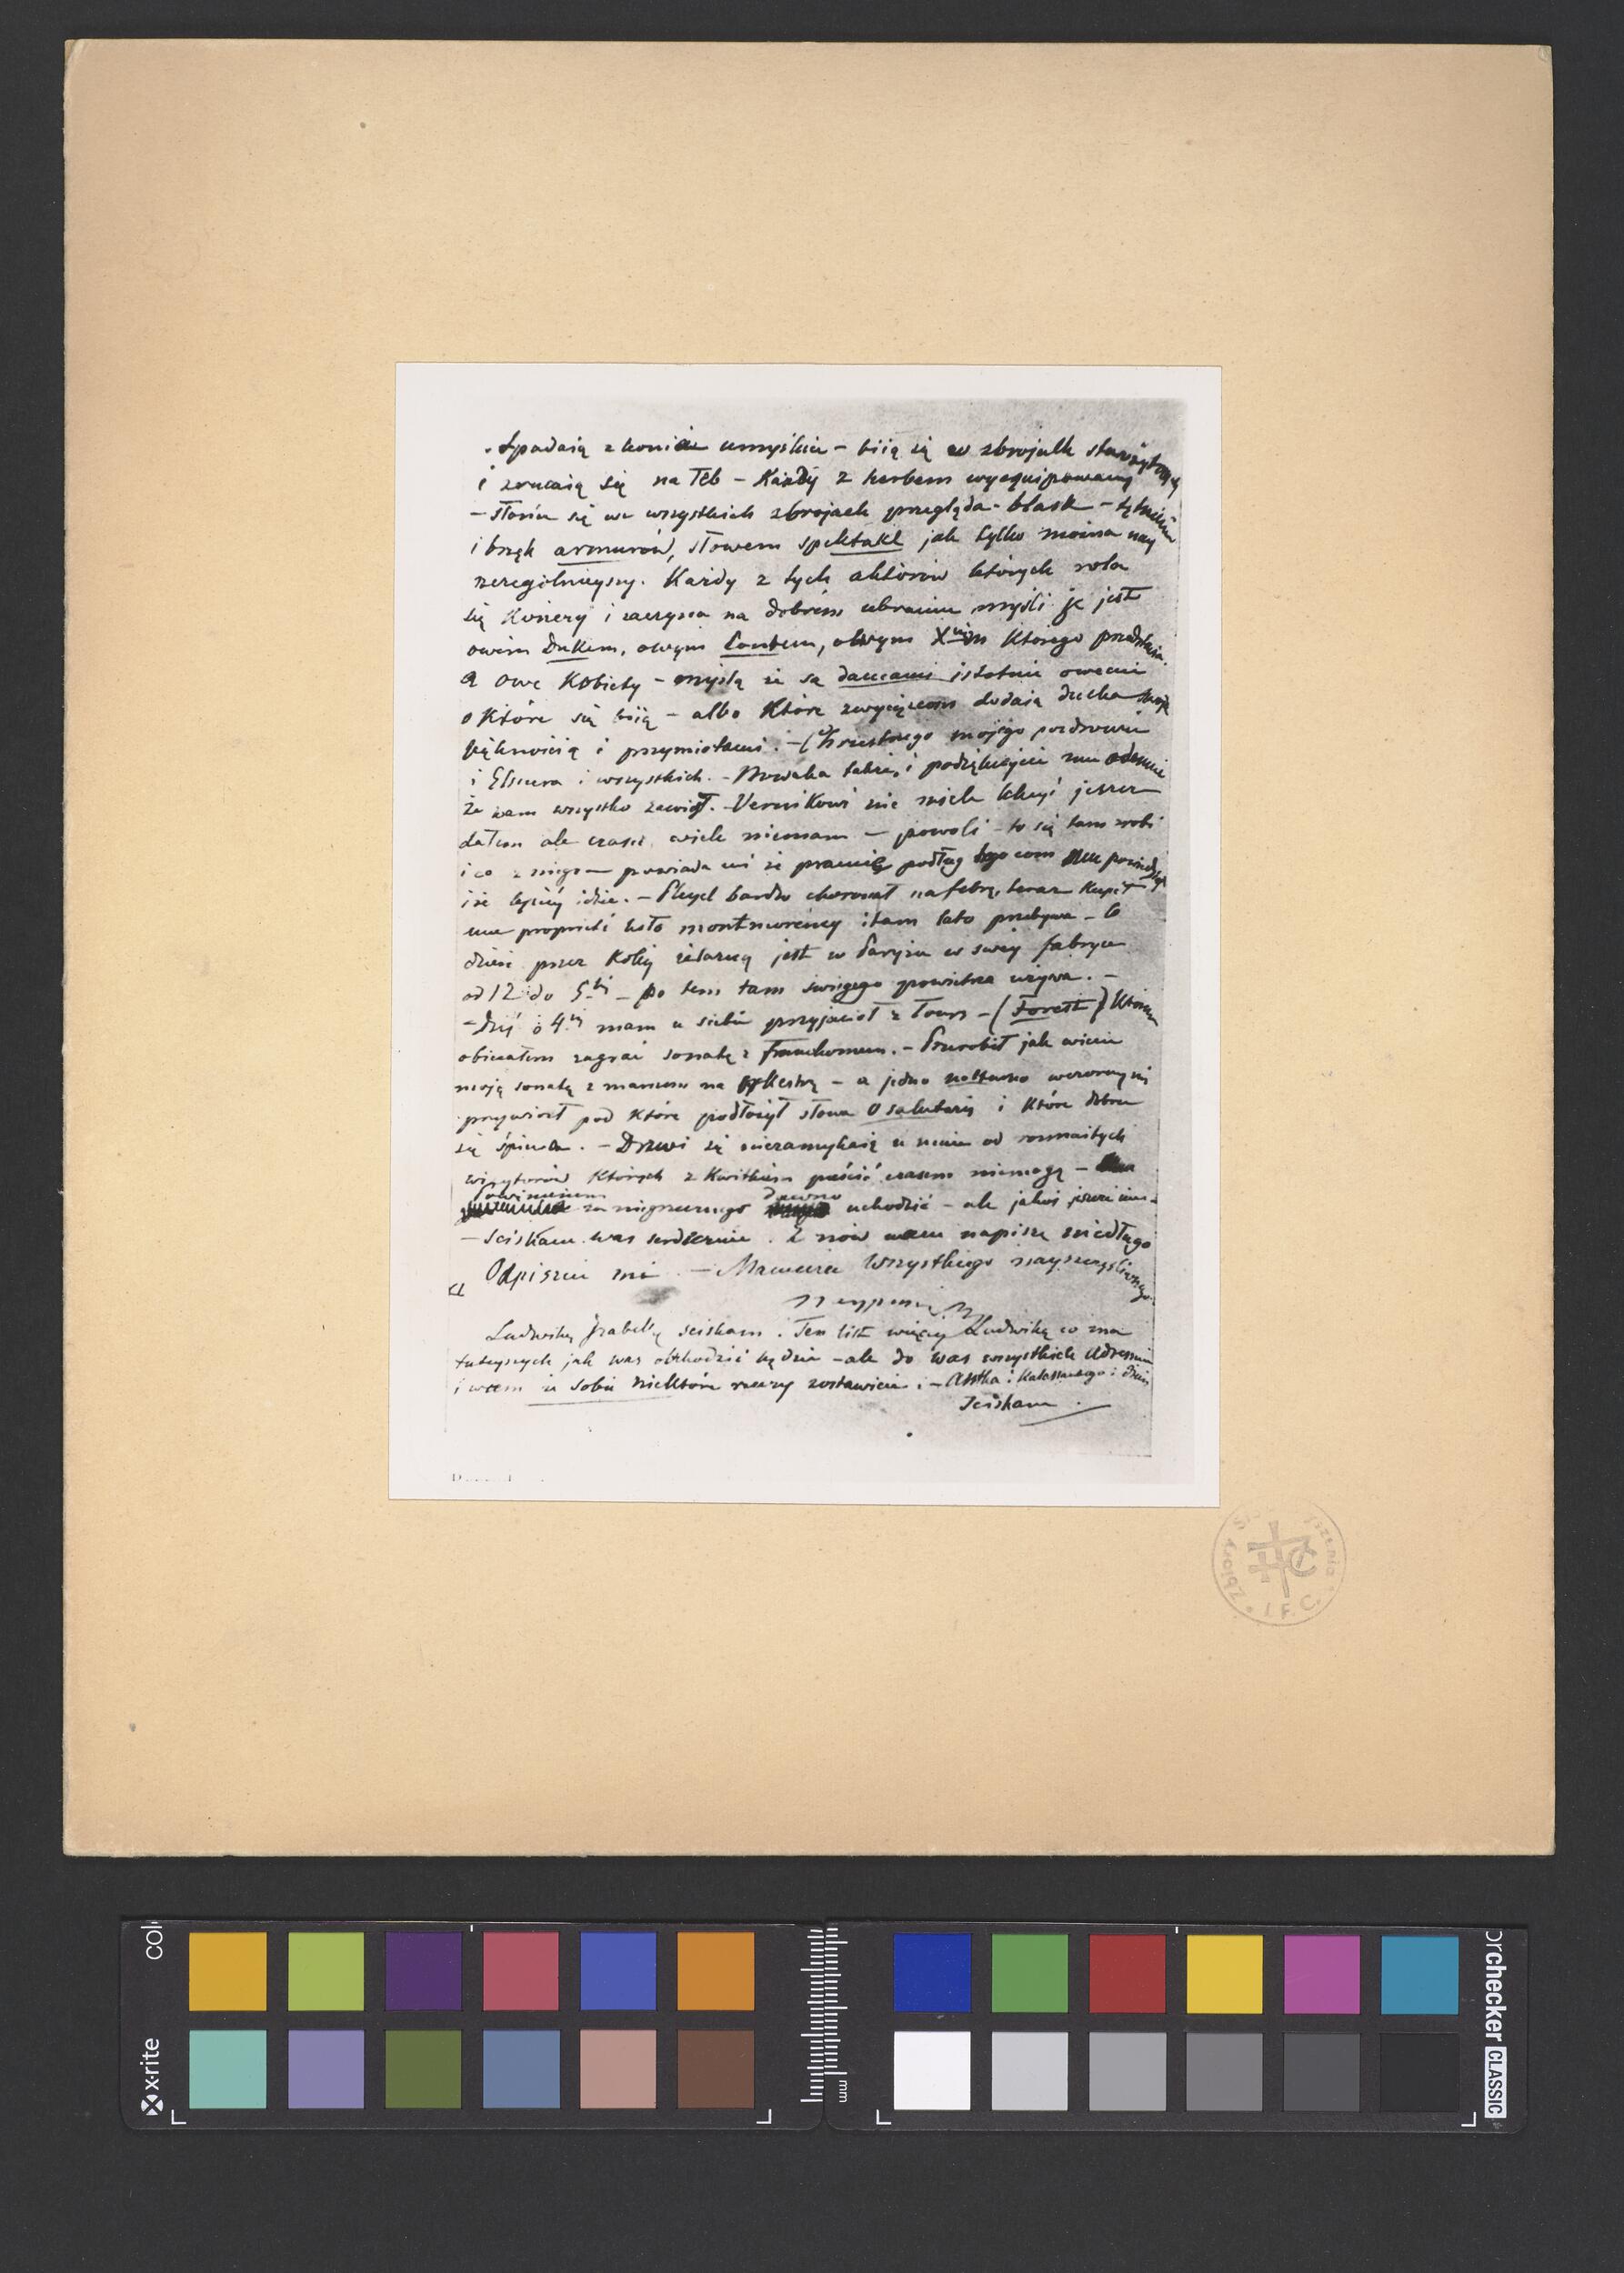 Spadaią z konia umyślnie – biią się w zbrojach starożytnych
i zrucaią się na łeb – Każdy z herbem wyequipowany
– słońce się we wszystkich zbrojach przegląda – blask – tętnienie
i brzęk armurów, słowem spektakl jak tylko można nay
szczególnieyszy. Każdy z tych aktorów których rola
się kończy i zaczyna na dobrém ubraniu myśli że jest
owém Dukem, owym Contem, owym Xciem którego przedstawia.
a owe kobiety – myślą że są damami istotnie owemi
o które się biią – albo które zwycięzcom dodaią ducha swoją
pięknością i przymiotami. – (Chrzestnego mojego pozdrowcie
i Elsnera i wszystkich. – Nowaka także, i podziękujcie mu odemnie
że wam wszystko zawiózł. – Vernikowi nie wiele lekcyi jeszcze
dałem ale czasu wiele niemam – powoli – to się tam zrobi
i co z niego – powiada mi że pracuie podług tego com mu powiedział
i że lepiéy idzie. – Pleyel bardzo chorował na febrę, teraz kupił
une proprieté koło montmorency i tam lato przebywa – co
dzień przez koléy żelazną jest w Paryżu w swéy fabryce
od 12 do 5téy – po tem tam świeżego powietrza używa. –
– Dziś o 4téy mam u siebie przyjaciół z Tours – (Forest) któremu
obiecałem zagrać sonatę z Franchomem. – Przerobił jak wiecie
moją sonatę z marszem na orkiestrę – a jedno notturno wczoray mi
przywiózł pod które podłożył słowa O salutaris i które dobrze
się śpiewa. – Drzwi się niezamykaią u mnie od rozmaitych
wizytorów których z kwitkiem puścić czasem niemogę –
Powinienem za niegrzecznego dawno uchodzić – ale jakoś jeszcze nie. –
– Sciskam was serdecznie. Znów wam napiszę niedługo
Odpiszcie mi – Mamusiu Wszystkiego nayszczęśliwszego
Ludwikę Izabellę sciskam. Ten list więcéy Ludwikę co zna
tuteyszych jak was obchodzić będzie – ale do was wszystkich adressuię
i wiem że sobie niektóre rzeczy zostawicie. – Antka i Kalasantego i dzieci
sciskam.
Zbiory
I.F.C.
x-rite
mm
checker CLASSIC